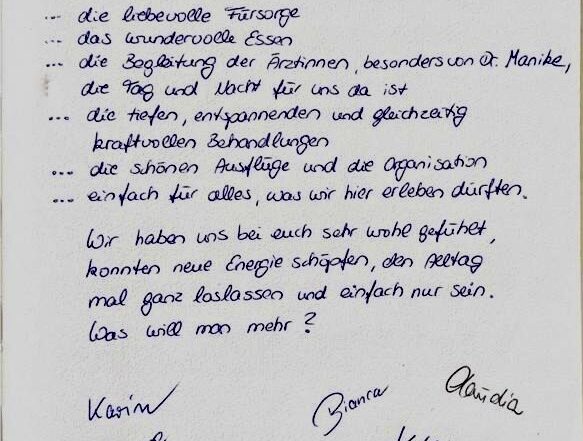 ... die liebevolle Fürsorge
... das wundervolle Essen
... die Begleitung der Ärztinnen, besonders von Dr. Manike,
die Tag und Nacht für uns da ist
... die tiefen, entspannenden und gleichzeitig
kraftvollen Behandlungen
... die schönen Ausflüge und die Organisation
... einfach für alles, was wir hier erleben dürften.
Wir haben uns bei euch sehr wohl gefühlt,
konnten neue Energie schöpfen, den Alltag
mal ganz loslassen und einfach nur sein.
Was will man mehr?
Claudia
Karin Bianca